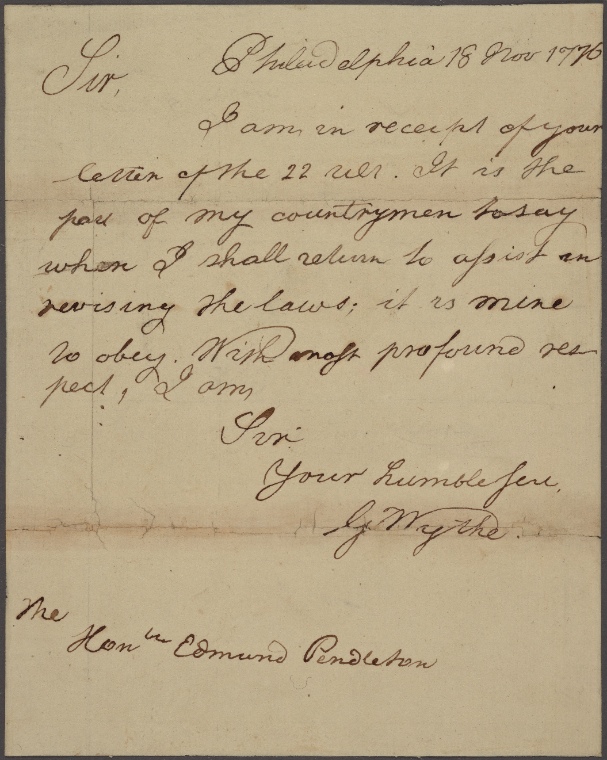 Philadelphia 18 Nov 1776
Sir,
I am in receipt of your
letter of the 22 ult. It is the
part of my countrymen to say
when I shall return to assist in
revising the laws; it is mine
to obey. With most profound res-
pect, I am,
Sir
Your humble serv,
G Wythe.
The
Honble Edmund Pendleton